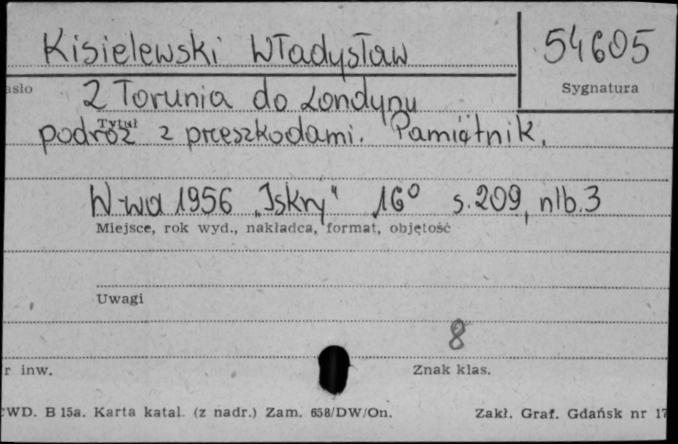 Kisielewski Władysław 54605
asło Sygnatura
Z Torunia do Londynu
Tytuł
podróż z przeszkodami. Pamiętnik.
W-wa 1956 „Iskry" 16° s.209, nlb.3
Miejsce, rok wyd., nakładca, format, objętość
Uwagi
8
r inw. Znak klas.
WD. B 15a. Karta katal. (z nadr.) Zam. 658/DW/On. Zakł. Graf. Gdańsk nr 17